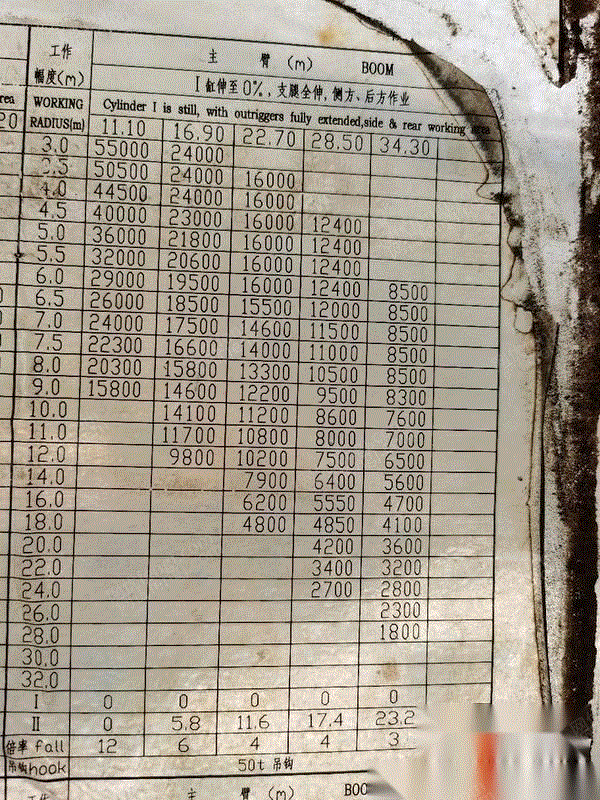 主 臂 (m) BOOM
工作
幅度(m)
I 缸伸至0%, 支腿全伸, 侧方、后方作业
WORKING
RADIUS(m)
Cylinder I is still, with outriggers fully extended,side & rear working area
11.10 16.90 22.70 28.50 34.30
3.0 55000 24000
3.5 50500 24000 16000
4.0 44500 24000 16000
4.5 40000 23000 16000 12400
5.0 36000 21800 16000 12400
5.5 32000 20600 16000 12400
6.0 29000 19500 16000 12400 8500
6.5 26000 18500 15500 12000 8500
7.0 24000 17500 14600 11500 8500
7.5 22300 16600 14000 11000 8500
8.0 20300 15800 13300 10500 8500
9.0 15800 14600 12200 9500 8300
10.0 14100 11200 8600 7600
11.0 11700 10800 8000 7000
12.0 9800 10200 7500 6500
14.0 7900 6400 5600
16.0 6200 5550 4700
18.0 4800 4850 4100
20.0 4200 3600
22.0 3400 3200
24.0 2700 2800
26.0 2300
28.0 1800
30.0
32.0
I 0 0 0 0 0
II 0 5.8 11.6 17.4 23.2
倍率 fall 12 6 4 4 3
吊钩hook 50t 吊钩
主 臂 (m) BOO